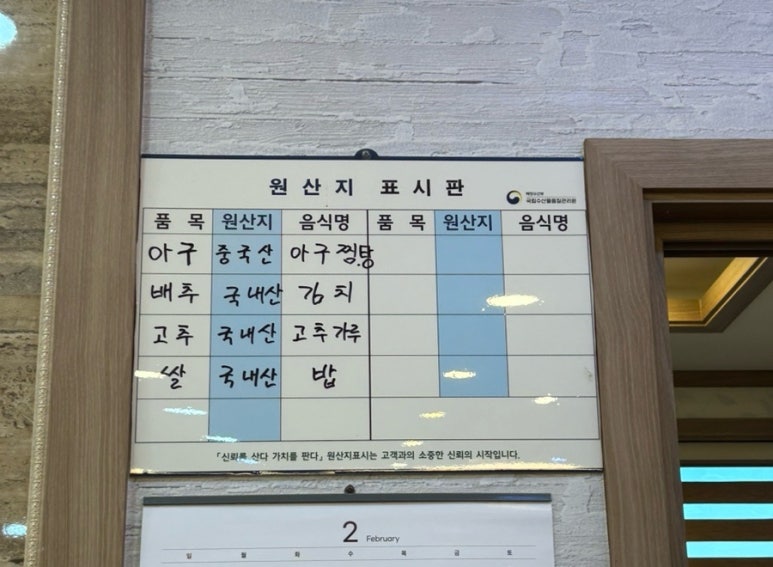 원산지 표시판
해양수산부
국립수산물품질관리원
품목 원산지 음식명 품목 원산지 음식명
아구 중국산 아구찜.탕
배추 국내산 김치
고추 국내산 고추가루
쌀 국내산 밥
「신뢰를 산다 가치를 판다」 원산지표시는 고객과의 소중한 신뢰의 시작입니다.
2 February
일 월 화 수 목 금 토